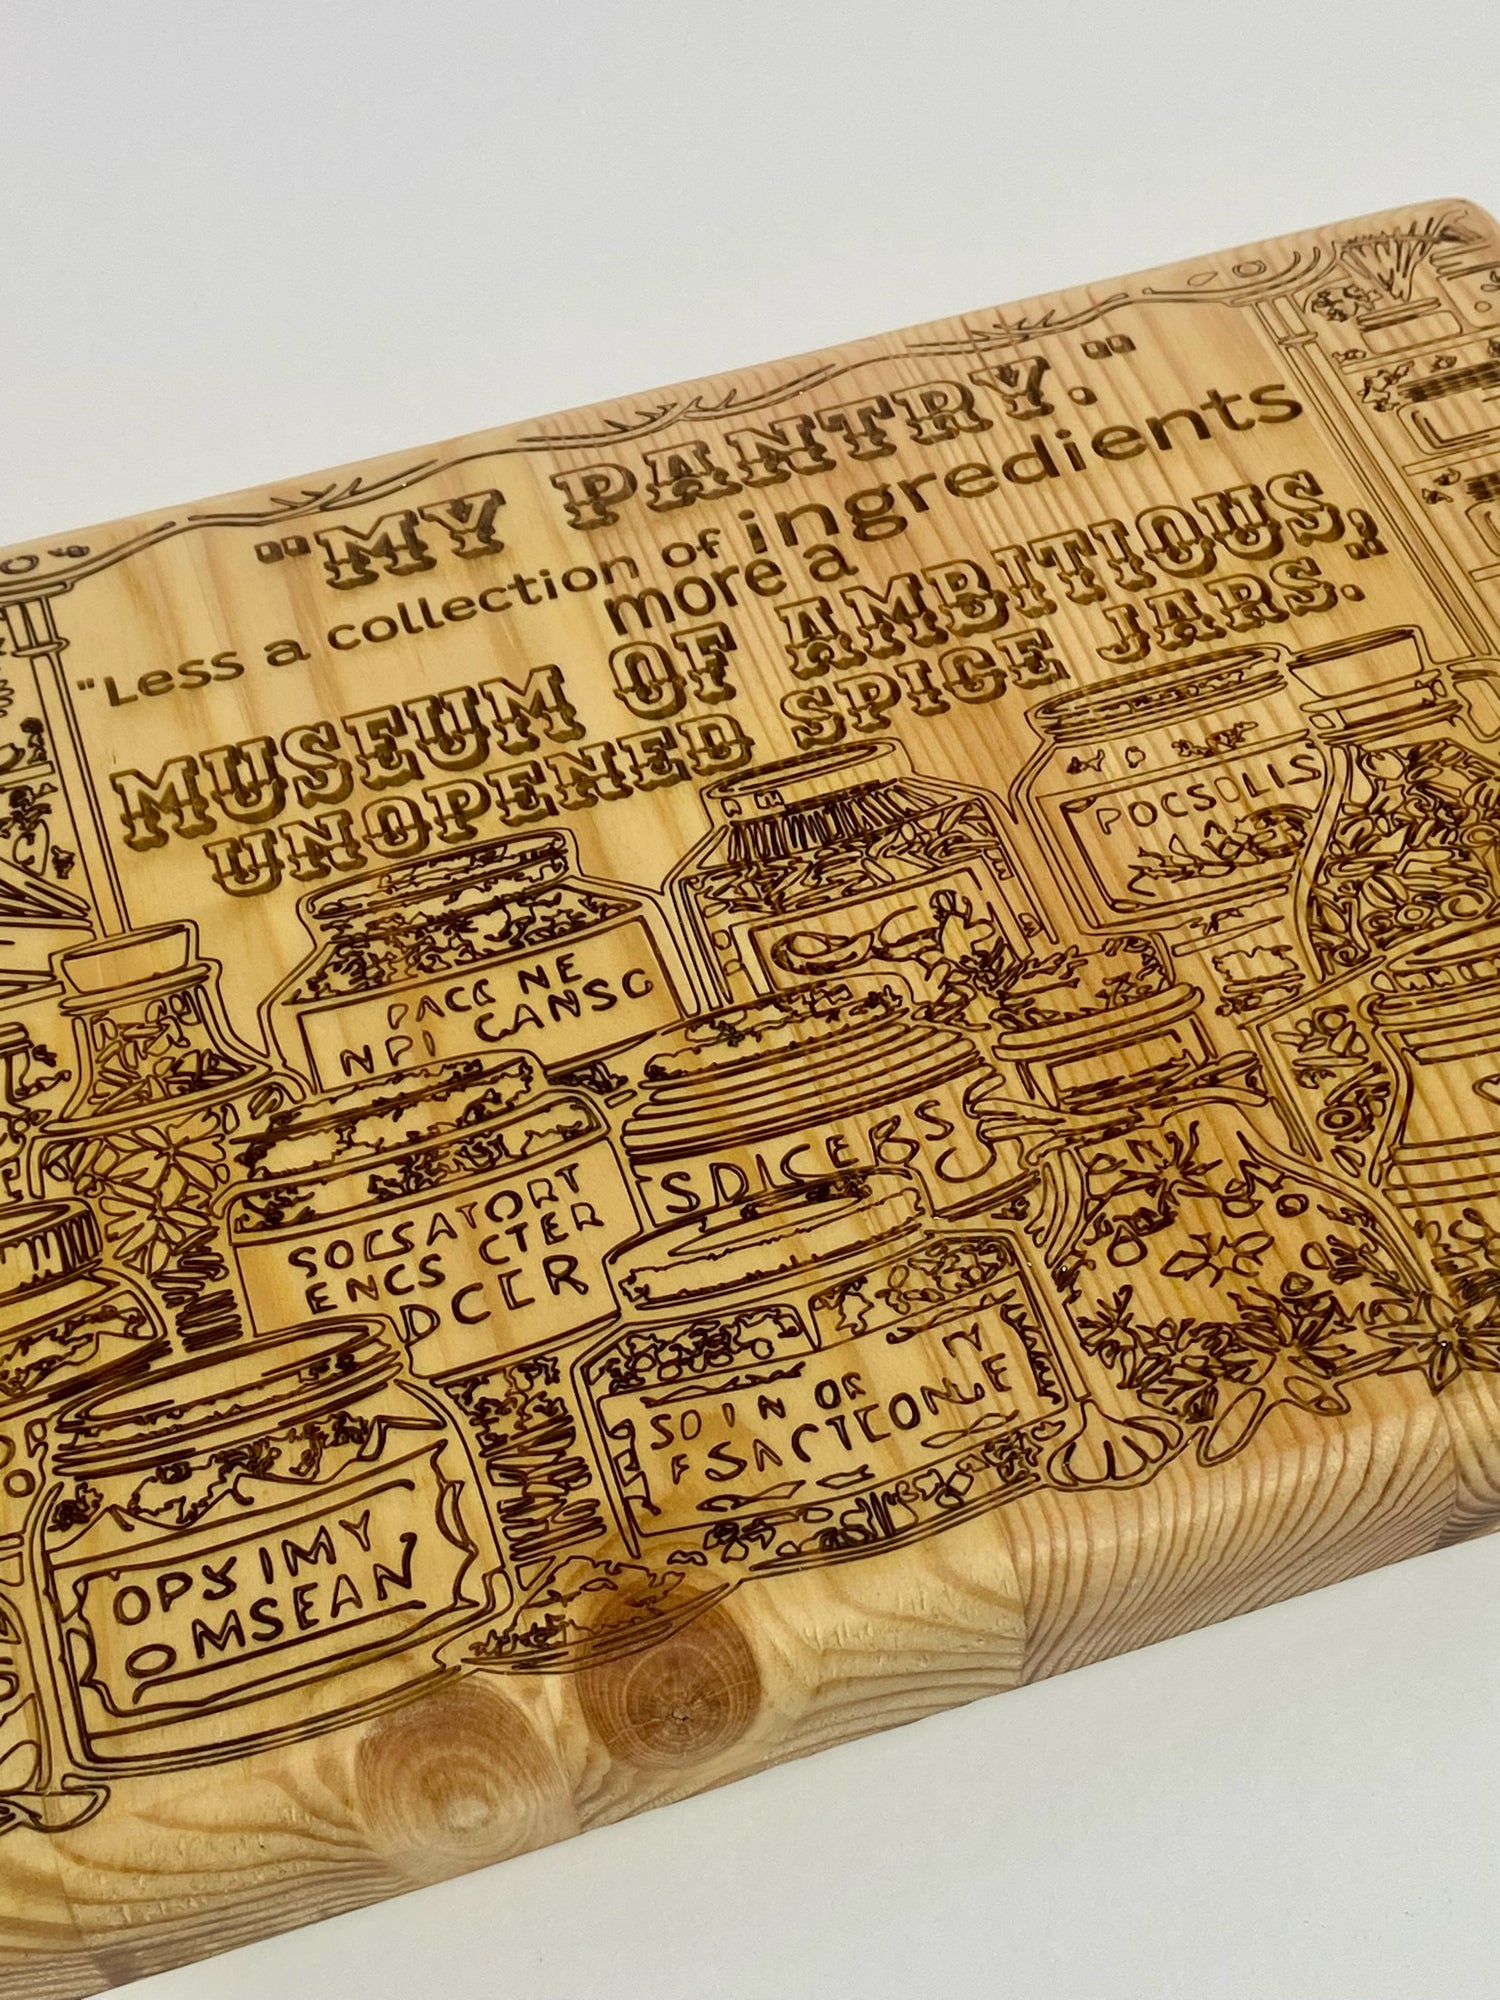 "MY PANTRY."
"Less a collection of ingredients
more a
MUSEUM OF AMBITIOUS,
UNOPENED SPICE JARS."
POCSOLLS
PACC NE
NPI CANSG
SDICEBS
SOCSATORT
ENCS CTER
DCCR
SOIN OR
FSACTCONUE
OPSIMY
OMSEAN